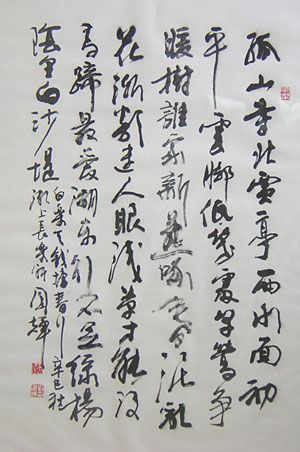 孤山寺北賈亭西水面初
平雲腳低幾處早鶯爭
暖樹誰家新燕啄春泥亂
花漸欲迷人眼淺草才能沒
馬蹄最愛湖東行不足綠楊
陰里白沙堤
白樂天錢塘春行辛巳秋
上長樂